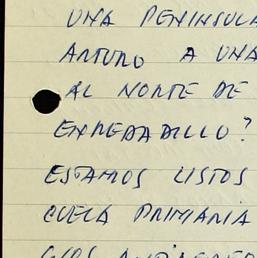 UNA PENINSULA
ARTURO A UNA
AL NORTE DE
ENREDADILLO?
ESTAMOS LISTOS
CUELA PRIMARIA